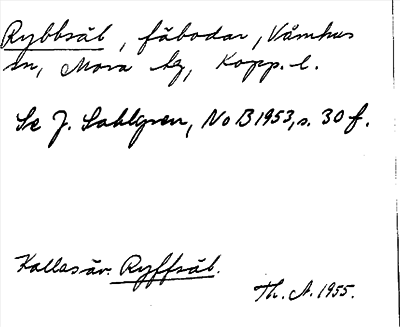 Rybbsäb, fäbodar, Våmhus
sn, Mora tg, Kopp. l.
Se J. Sahlgren, NoB 1953, s. 30 f.
Kallas äv. Ryffsäb.
Th. A. 1955.